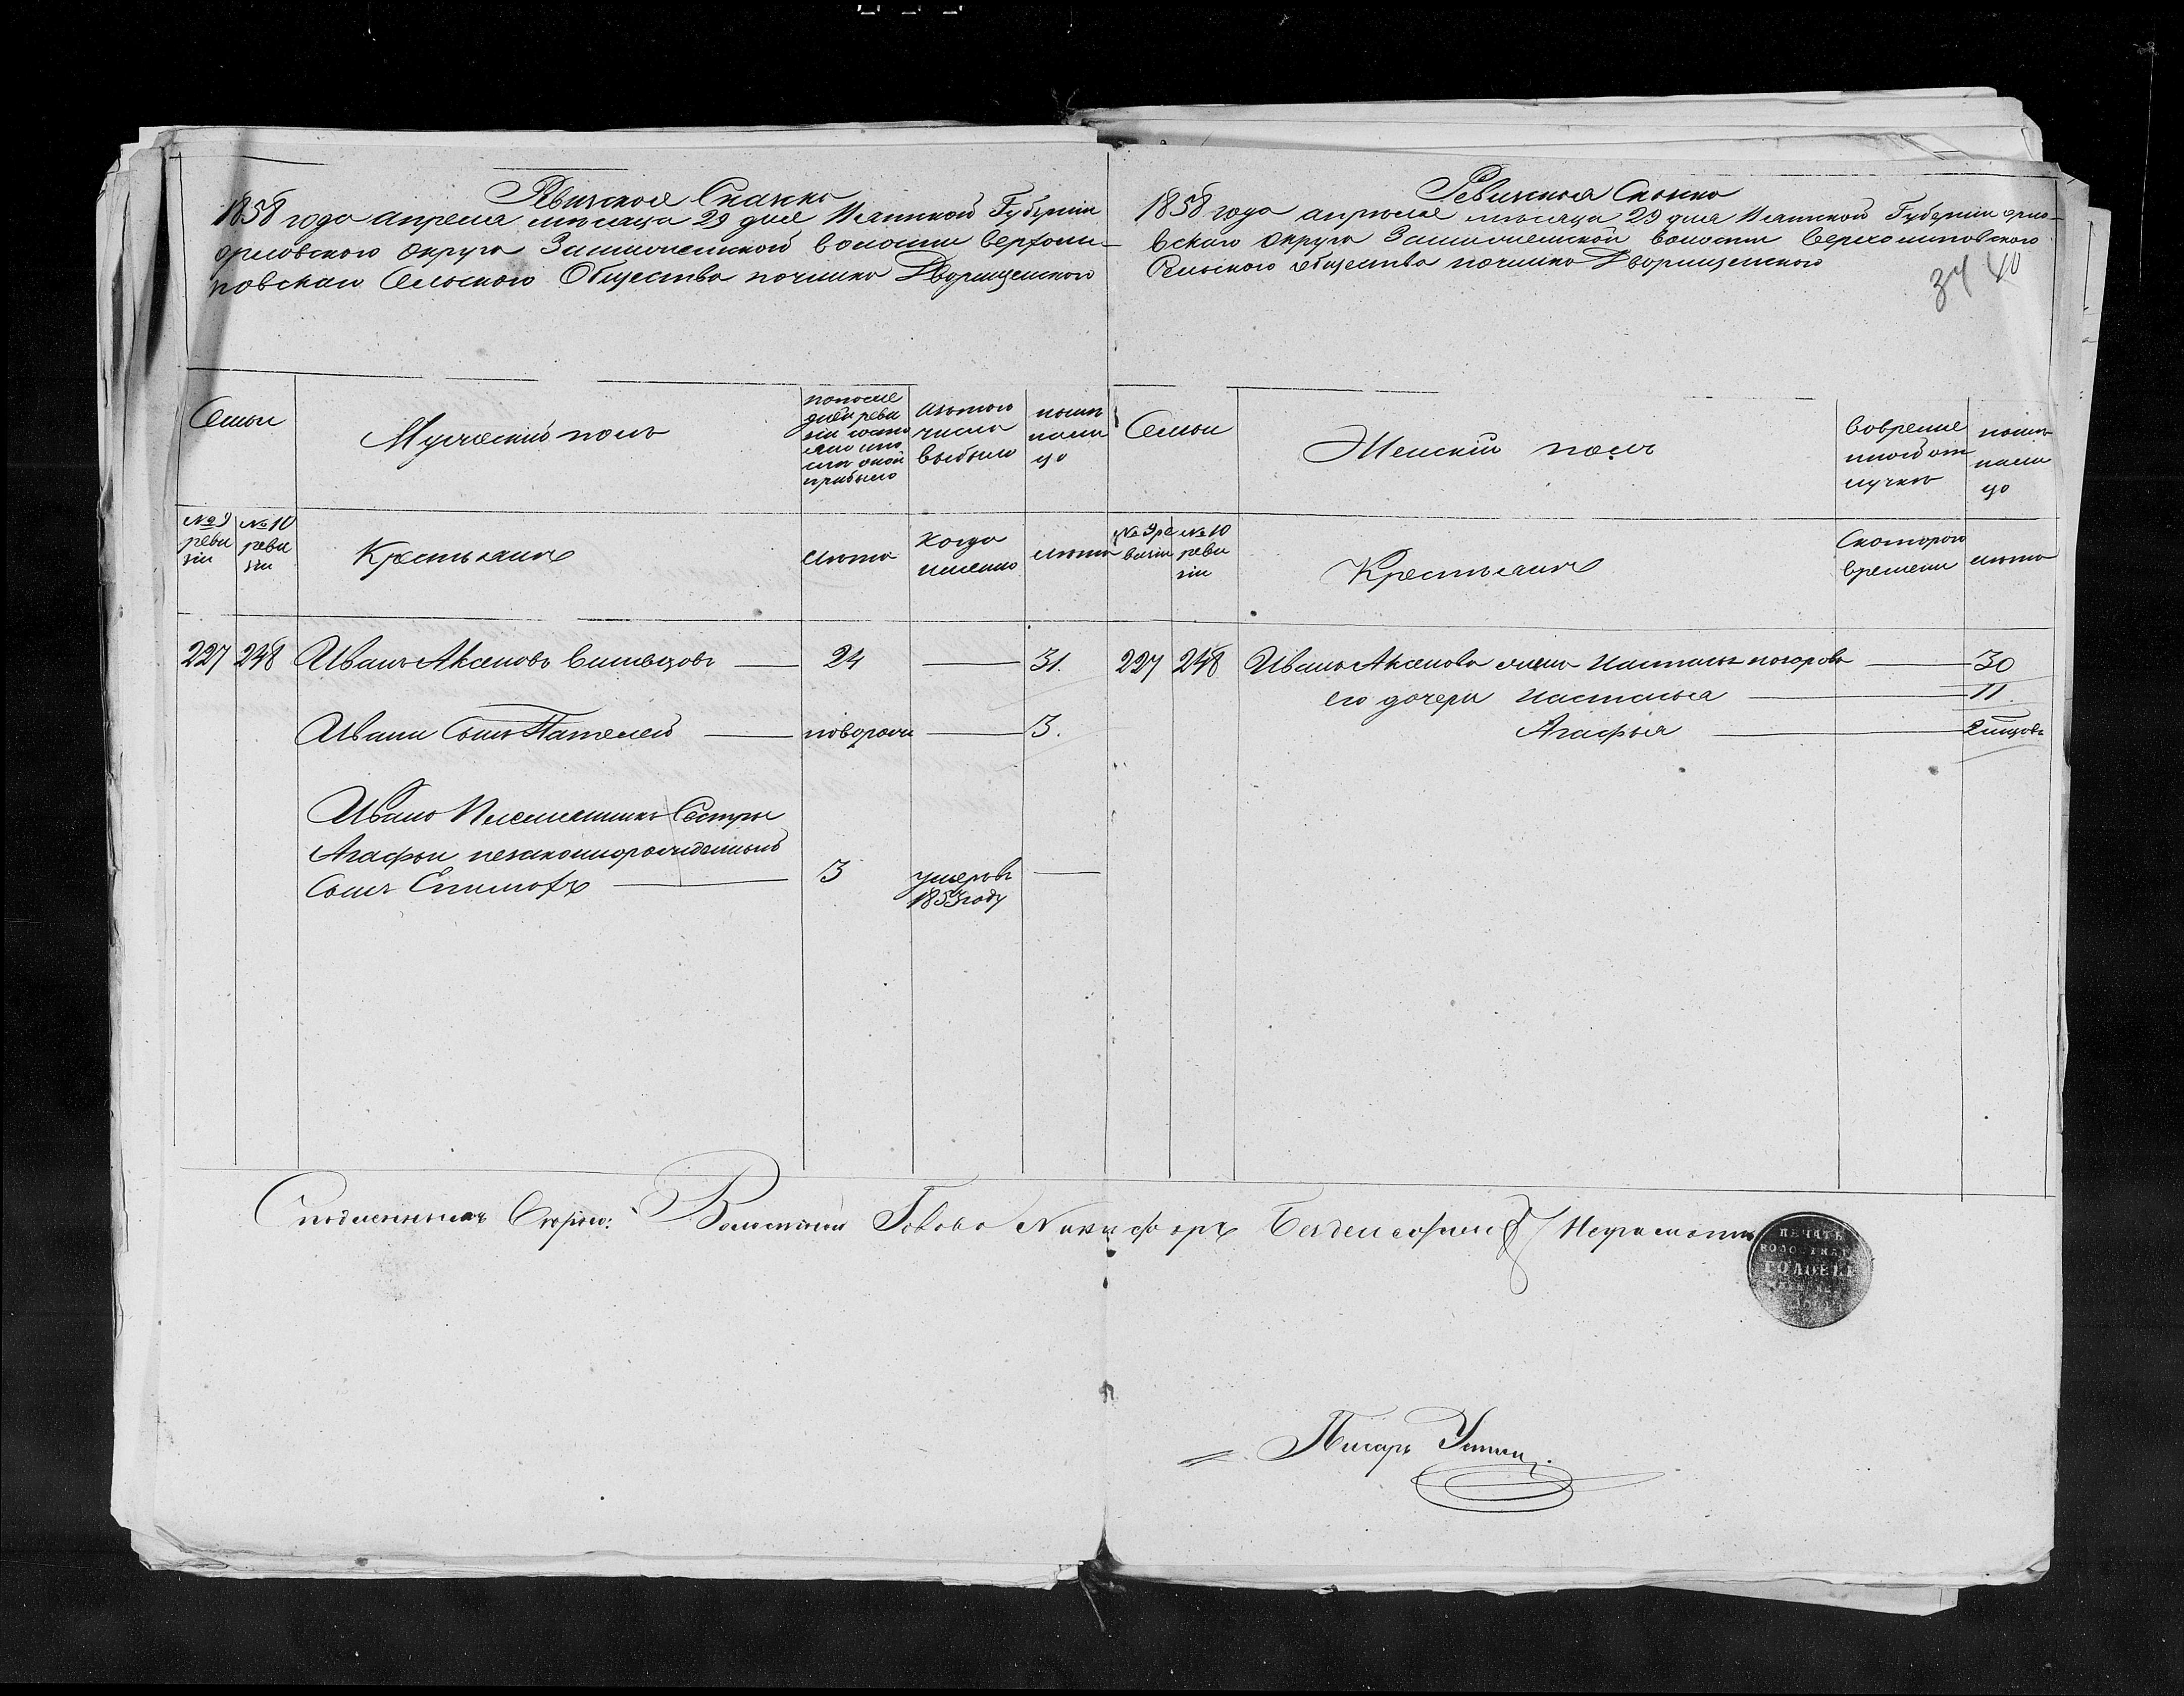 Ревизская Сказка
1858 года апреля месяца 29 дня Вятской Губернiи
орловского округа волости Верхоли-
повскаго Сельскаго Общества починка Дворищенскаго
Семьи
Мужескiй полъ
по после
дней реви
зiи состо
яло или
после оной
прибыло
изътого
числа
выбыло
ныне
нали
цо
№ 9
ревизiи
№ 10
ревизiи
Крестьяне
лета
Когда
именно
лета
227 248 Иванъ Аксеновъ 24 31.
Ивана Сынъ Пателей новорож 3.
Ивана Племянникъ Сестры
Агафьи незаконнорожденный
Сынъ 3 умеръ в
1853 году
Ревизская Сказка
1858 года апреля месяца 29 дня Вятской Губернiи орло-
вскаго округа волости Верхолиповскаго
Сельскаго общества починка Дворищенскаго
37 40
Семьи
Женскiй полъ
Вовремен
ной от
лучке
ныне
нали
цо
№ 9 ре
визiи
№ 10
реви
зiи
Крестьяне
Скоторого
времени
лета
227 248 Ивана Аксенова жена Настасья 30
его дочери Настасья 11.
Агафья
Волостной Голова Никифоръ Неграмотн
ПЕЧАТЬ
ГОЛОВЫ
Писарь